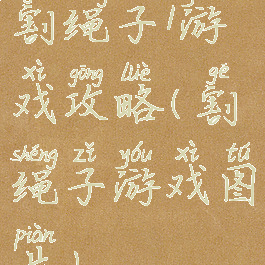 割绳子/游
xì gōng lüè gē
戏攻略(割
shéng zǐ yóu xì tú
绳子游戏图
piàn
片)